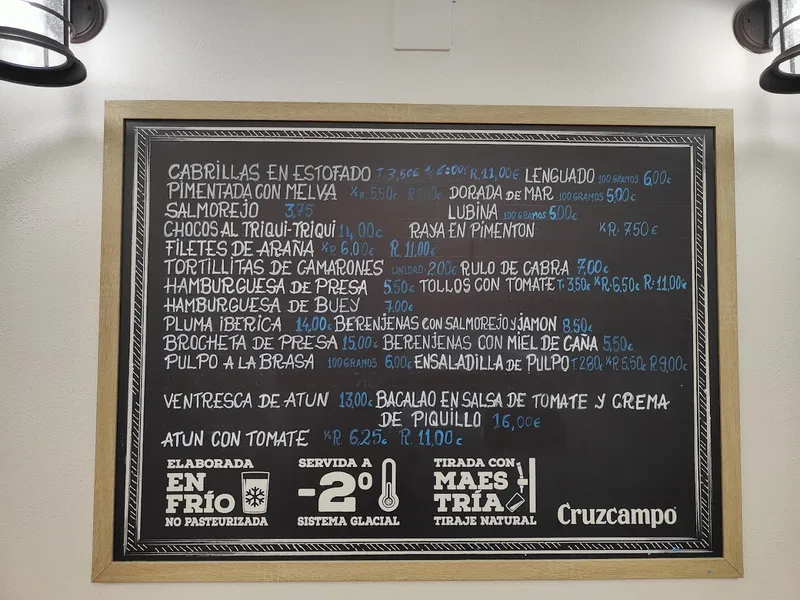 CABRILLAS EN ESTOFADO T 3,50€ R. 11,00€ LENGUADO 100 GRAMOS 6,00€
PIMENTADA CON MELVA ½R: 5,50€ DORADA DE MAR 100 GRAMOS 5,00€
SALMOREJO 3,75 LUBINA 100 GRAMOS 5,00€
CHOCOS AL TRIQUI-TRIQUI 14,00€ RAYA EN PIMENTON ½R: 7,50€
FILETES DE ARAÑA ½R 6,00€ R. 11,00€
TORTILLITAS DE CAMARONES UNIDAD: 2,00€ RULO DE CABRA 7,00€
HAMBURGUESA DE PRESA 5,50€ TOLLOS CON TOMATE T: 3,50€ ½R: 6,50€ R: 11,00€
HAMBURGUESA DE BUEY 7,00€
PLUMA IBERICA 14,00€ BERENJENAS CON SALMOREJO Y JAMON 8,50€
BROCHETA DE PRESA 15,00€ BERENJENAS CON MIEL DE CAÑA 5,50€
PULPO A LA BRASA 100 GRAMOS 6,00€ ENSALADILLA DE PULPO T 2,80€ ½R 5,50€ R 9,00€
VENTRESCA DE ATUN 13,00€ BACALAO EN SALSA DE TOMATE Y CREMA
DE PIQUILLO 16,00€
ATUN CON TOMATE ½R. 6,25€ R. 11,00€
ELABORADA
EN
FRÍO
NO PASTEURIZADA
SERVIDA A
-2º
SISTEMA GLACIAL
TIRADA CON
MAES
TRÍA
TIRAJE NATURAL
Cruzcampo